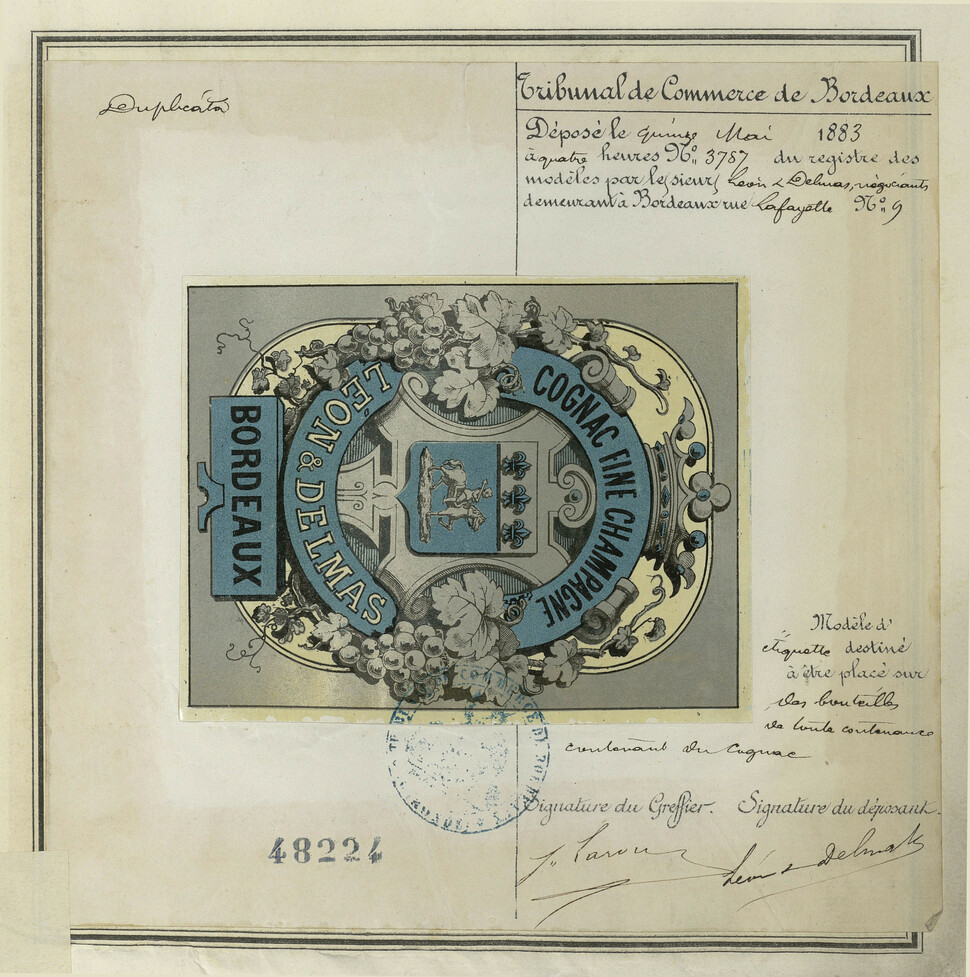 Duplicata
Tribunal de Commerce de Bordeaux
Déposé le quinze Mai 1883
à quatre heures No. 3787 du registre des
modèles par le sieur Léon & Delmas, négociants
demeurant à Bordeaux rue Lafayette No. 9
COGNAC FINE CHAMPAGNE
LÉON & DELMAS
BORDEAUX
Modèle d'
étiquette destiné
à être placé sur
des bouteilles
de toute contenance
contenant du Cognac
Signature du Greffier. Signature du déposant.
Léon & Delmas
48224